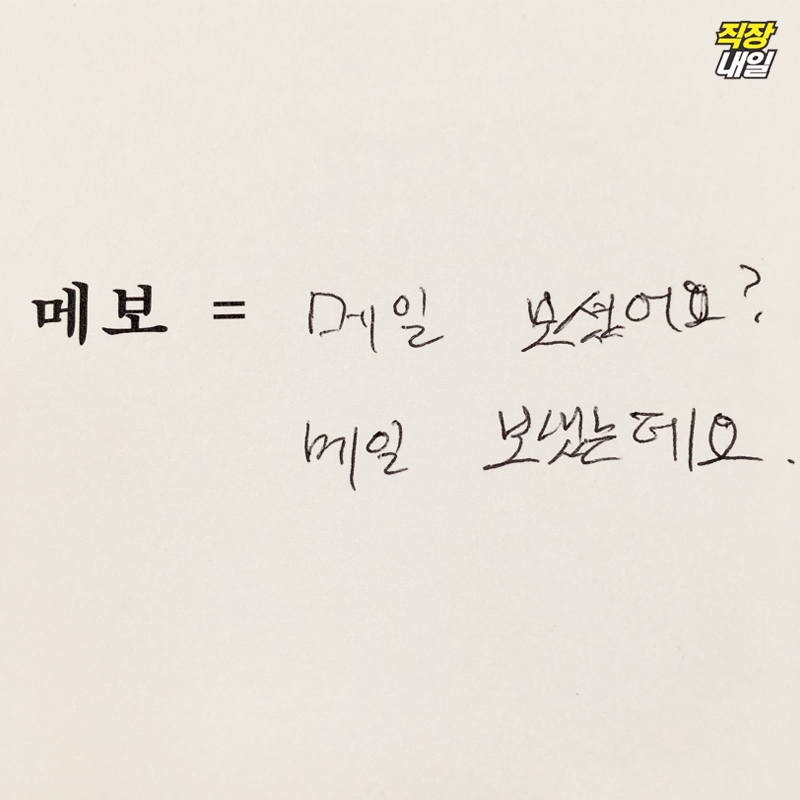 직장
내일
메보 = 메일 보셨어요?
메일 보냈는데요.